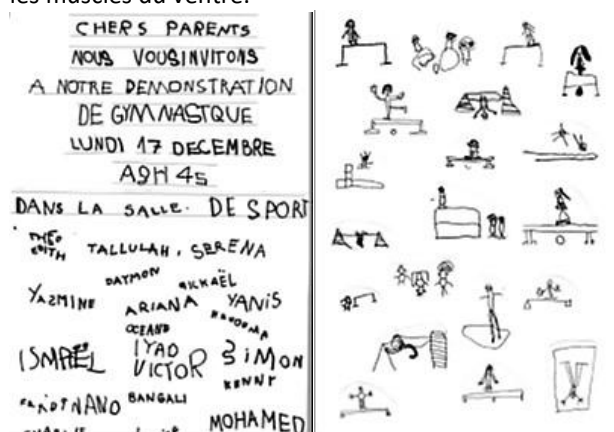 les muscles du ventre.
CHERS PARENTS
NOUS VOUSINVITONS
A NOTRE DEMONSTRATION
DE GYMNASTQUE
LUNDI 17 DECEMBRE
A9H 45
DANS LA SALLE. DE SPORT
THÉO
EDITH
TALLULAH, SERENA
DAYMON
MICKAËL
YAZMINE
ARIANA
YANIS
OCEAND
ISMAËL
IYAD
VICTOR
SIMON
KENNY
BANGALI
MOHAMED